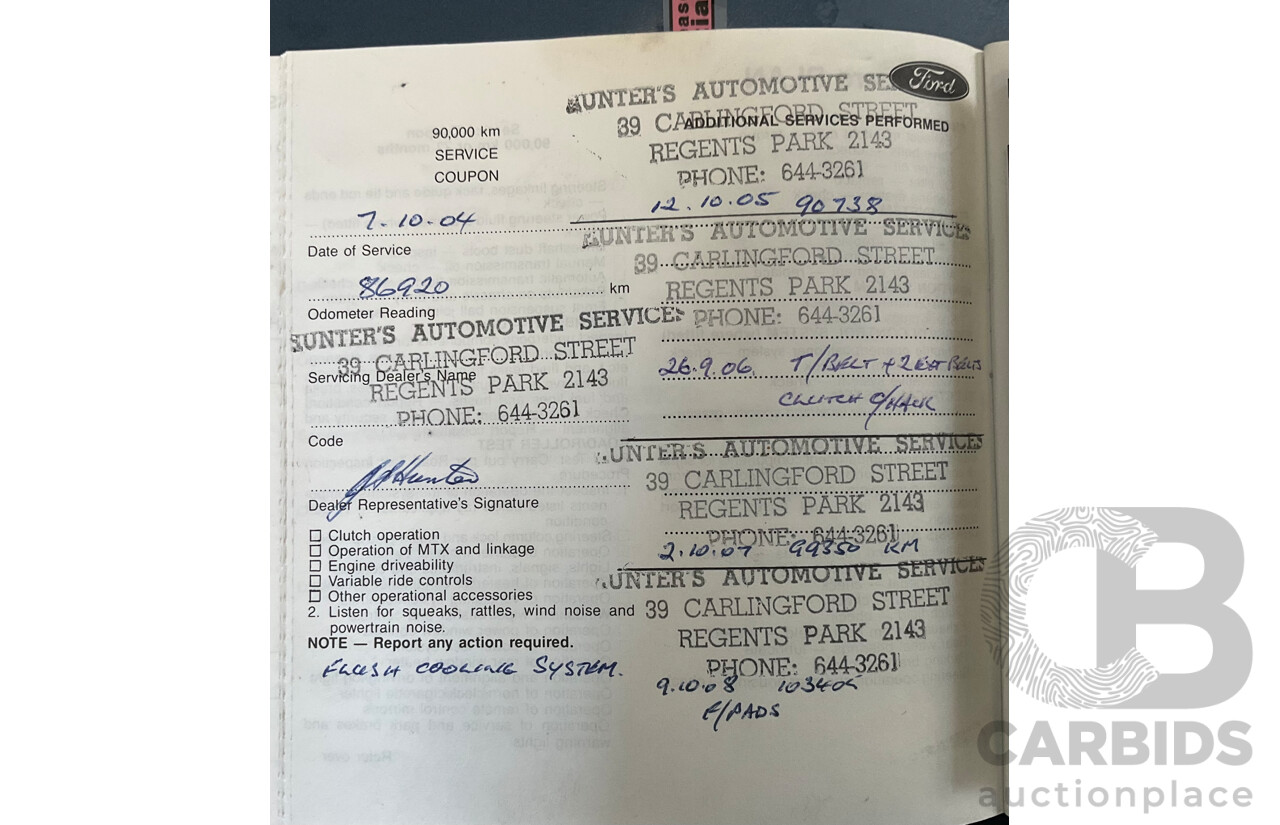 Ford
HUNTER'S AUTOMOTIVE SE
39 CARLINGFORD STREET
ADDITIONAL SERVICES PERFORMED
REGENTS PARK 2143
PHONE: 644-3261
12.10.05 90738
90,000 km
SERVICE
COUPON
7.10.04
Date of Service
86920 km
Odometer Reading
HUNTER'S AUTOMOTIVE SERVICES
39 CARLINGFORD STREET
Servicing Dealer's Name
REGENTS PARK 2143
PHONE: 644-3261
Code
J Hunter
Dealer Representative's Signature
Clutch operation
Operation of MTX and linkage
Engine driveability
Variable ride controls
Other operational accessories
2. Listen for squeaks, rattles, wind noise and
powertrain noise.
NOTE — Report any action required.
FLUSH COOLING SYSTEM.
HUNTER'S AUTOMOTIVE SERVICES
39 CARLINGFORD STREET
REGENTS PARK 2143
PHONE: 644-3261
26.9.06. T/BELT + 2 EXT BELTS
CLUTCH
HUNTER'S AUTOMOTIVE SERVICES
39 CARLINGFORD STREET
REGENTS PARK 2143
PHONE: 644-3261
2.10.07 99350 KM
HUNTER'S AUTOMOTIVE SERVICES
39 CARLINGFORD STREET
REGENTS PARK 2143
PHONE: 644-3261
9.10.08 103405
F/PADS
CB
CARBIDS
auctionplace